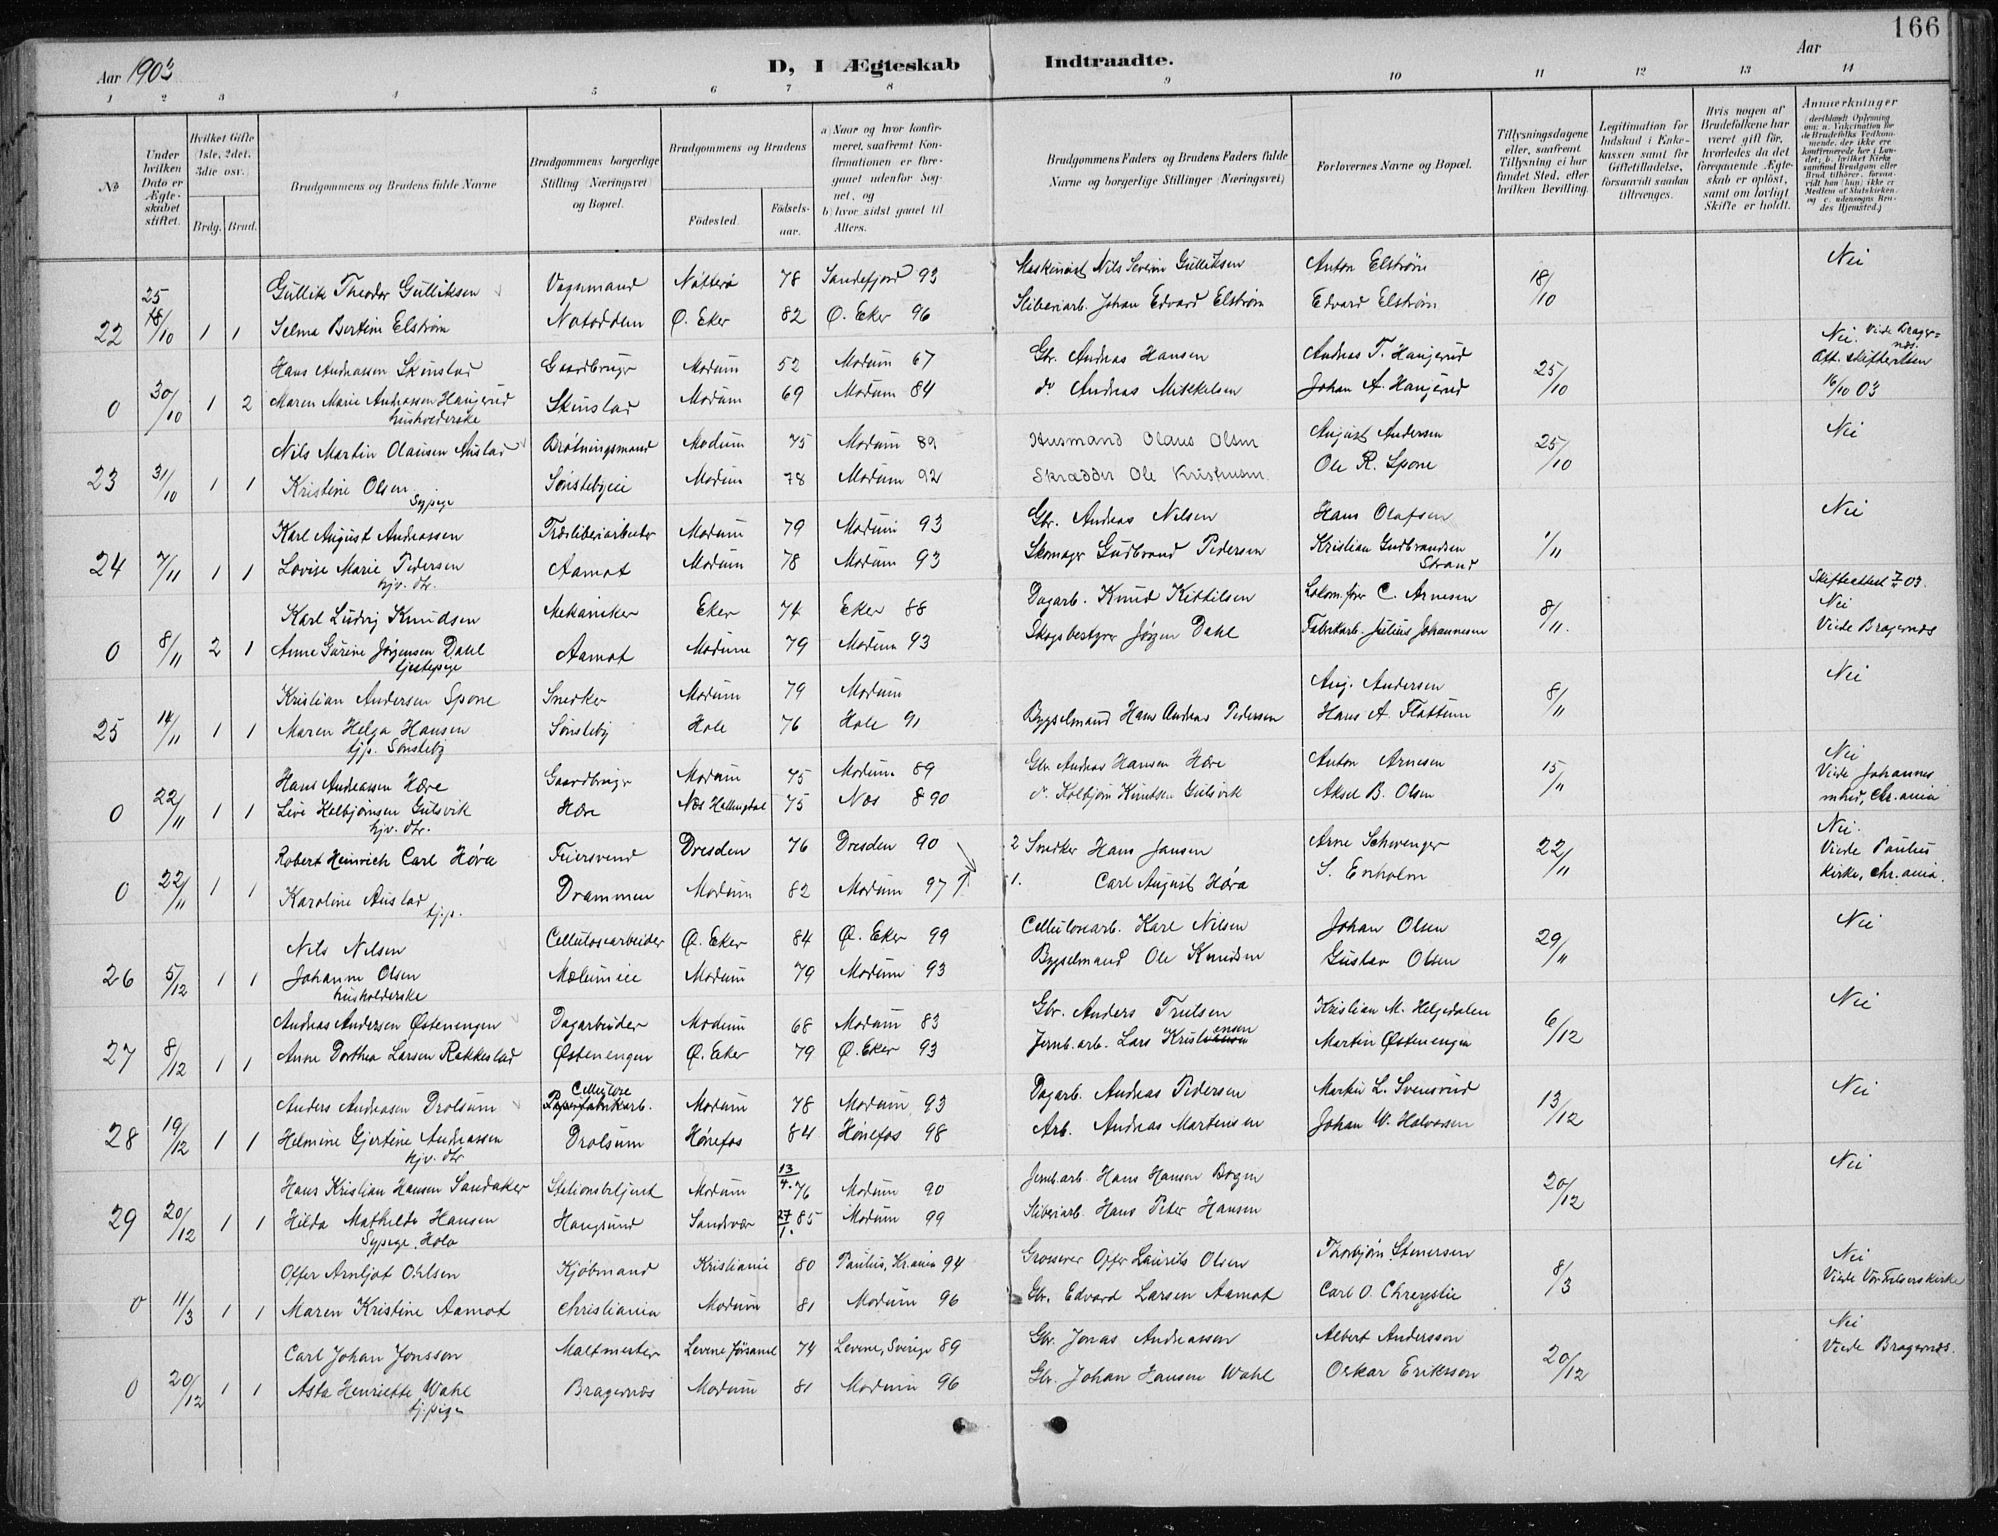 166
Aar 1903
D, I Ægteskab Indtraadte.
Aar
1 2 3 4 5 6 7 8 9 10 11 12 13 14
No
Under hvilken Dato er Ægteskabet stiftet.
Hvilket Gifte (1ste, 2det, 3die osv.)
Brdg. Brud.
Brudgommens og Brudens fulde Navne
Brudgommens borgerlige Stilling (Næringsvei) og Bopæl.
Brudgommens og Brudens
Fødested. Fødselsaar.
a) Naar og hvor konfirmeret, saafremt Konfirmationen er foregaaet udenfor Sognet, og
b) hvor sidst gaaet til Alters.
Brudgommens Faders og Brudens Faders fulde Navne og borgerlige Stillinger (Næringsvei)
Forlovernes Navne og Bopæl.
Tillysningsdagene eller, saafremt Tillysning ei har fundet Sted, efter hvilken Bevilling.
Legitimation for Indskud i Enkekassen samt for Giftetilladelse, forsaavidt saadan tiltrænges.
Hvis nogen af Brudefolkene har været gift før, hvorledes da det foregaaende Ægteskab er opløst, samt om lovligt Skifte er holdt.
Anmerkninger
(deriblandt Oplysning om: a. Vakcination for de Brudefolks Vedkommende, der ikke ere konfirmerede her i Landet; b. hvilket Kirkesamfund Brudgom eller Brud tilhører, forsaavidt han (hun) ikke er Medlem af Statskirken, og c. udensogns Brudes Hjemsted.)
Gullik Theodor Gulliksen Vognmand Nøtterø 78 Sandefjord 93 Maskinist Nils Severin Gulliksen Anton Elstrøm 18/10 Nei
22 25/10 1 1 Selma Bertine Elstrøm Notodden Ø. Eker 82 Ø. Eker 96 Sliberiarb. Johan Edvard Elstrøm Edvard Elstrøm
Hans Andreassen Skinstad Gaardbruger Modum 52 Modum 67 Gbr. Andreas Hansen Andreas T. Haugerud 25/10 Nei. Viede Bragernæs.
0 30/10 1 2 Maren Marie Andreassen Haugerud Skinstad Modum 69 Modum 84 do Andreas Mikkelsen Johan A. Haugerud Att. skifterten 16/10 03
husholderske
Nils Martin Olausen Austad Brøtningsmand Modum 75 Modum 89 Husmand Olaus Olsen August Andersen 25/10 Nei
23 31/10 1 1 Kristine Olsen Sønstebyeie Modum 78 Modum 92 Skrædder Ole Kristensen Ole R. Spone
Sypige
Karl August Andreassen Træsliberiarbeider Modum 79 Modum 93 Gbr. Andreas Nilsen Hans Olafsen 1/11 Nei
24 7/11 1 1 Lovise Marie Pedersen Aamot Modum 78 Modum 93 Skomager Gudbrand Pedersen Kristian Gudbrandsen Strand
hjv. dtr.
Karl Ludvig Knudsen Mekaniker Eker 74 Eker 88 Dagarb. Knud Kittilsen Lokom.fører C. Arnesen 8/11. Skifteattest 03. Nei
0 8/11 2 1 Anne Gurine Jørgensen Dahl Aamot Modum 79 Modum 93 Skogsbestyrer Jørgen Dahl Fabrikarb. Julius Johannesen Viede Bragernæs
tjenstepige
Kristian Andersen Spone Snedker Modum 79 Modum Aug. Andersen 8/11 Nei
25 14/11 1 1 Maren Helga Hansen Sønsteby Hole 76 Hole 91 Bygselmand Hans Andreas Pedersen Hans A. Flattum
tjp. Sønsteby
Hans Andreassen Hære Gaardbruger Modum 75 Modum 89 Gbr. Andreas Hansen Hære Anton Arnesen 15/11 Nei
0 22/11 1 1 Live Kolbjørnsen Gulsvik Hære Næs Hallingdal 75 Næs 90 do. Kolbjørn Knutsen Gulsvik Aksel B. Olsen Viede Johannes menhed, Chr.ania
hjv. dtr.
Robert Heinrich Carl Høra Feiersvend Dresden 76 Dresden 90 2 Snedker Hans Jansen Arne Schwenger 22/11 Nei.
0 22/11 1 1 Karoline Austad Drammen Modum 82 Modum 97 1. Carl August Høra S. Enholm Viede Paulus Kirke, Chr.ania.
tj.p.
Nils Nilsen Cellulosearbeider Ø. Eker 84 Ø. Eker 99 Cellulosearb. Karl Nilsen Johan Olsen 29/11 Nei
26 5/12 1 1 Johanne Olsen Mælumeie Modum 79 Modum 93 Bygselmand Ole Knudsen Gustav Olsen
husholderske
Andreas Andersen Østenengen Dagarbeider Modum 68 Modum 83 Gbr. Anders Trulsen Kristian M. Helgedalen 6/12 Nei
27 8/12 1 1 Anne Dorthea Larsen Rakkestad Østenengen Ø. Eker 79 Ø. Eker 93 Jernb.arb. Lars Kristiensen Martin Østenengen
Anders Andreasen Drolsum Cellulose Papirfabrikarb. Modum 78 Modum 93 Dagarb. Andreas Pedersen Martin L. Svensrud 13/12 Nei
28 19/12 1 1 Helmine Gjertine Andreassen Drolsum Hønefos 84 Hønefos 98 Arb. Andreas Martinsen Johan W. Halvorsen
hjv. dtr
Hans Kristian Hansen Sandaker Stationsbetjent Modum 13/4. 76 Modum 90 Jernb.arb. Hans Hansen Bogen 20/12 Nei
29 20/12 1 1 Hilda Mathilde Hansen Haugsund Sandsvær 27/1. 85 Modum 99 Sliberiarb. Hans Peter Hansen
Sypige, Holo
Offer Arnljot Ohlsen Kjøbmand Kristiania 80 Paulus, Kr.ania 94 Grosserer Offer Laurits Olsen Thorbjørn Stenersen 8/3 Nei
0 11/3 1 1 Maren Kristine Aamot Christiania Modum 81 Modum 96 Gbr. Edvard Larsen Aamot Carl O. Chrøystie Viede Vor Frelsers kirke
Carl Johan Jonsson Maltmester Levene 74 Levene, Sverige 89 Gbr. Jonas Andreassen Albert Andersson 20/12 Nei
0 20/12 1 1 Asta Henriette Wahl Bragernæs Modum 81 Modum 96 Gbr. Johan Hansen Wahl Oskar Eriksson Viede Bragernæs.
tj.pige